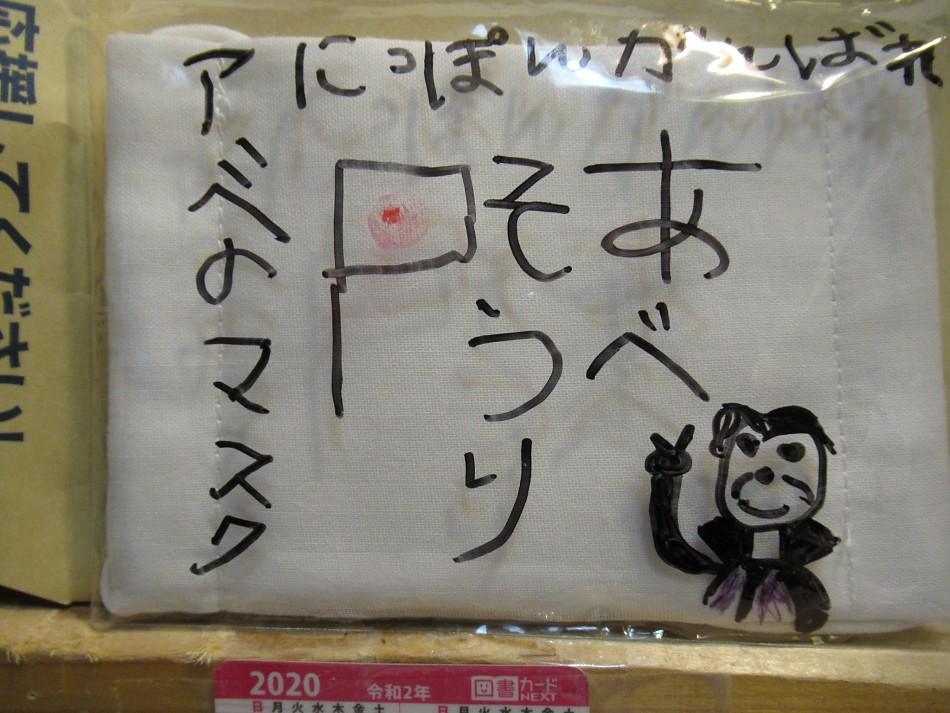 にっぽんがんばれ
あべ
そうり
アベのマスク
てください
2020
令和2年
図書カード
NEXT
日月火水木金土
日月火水木金土